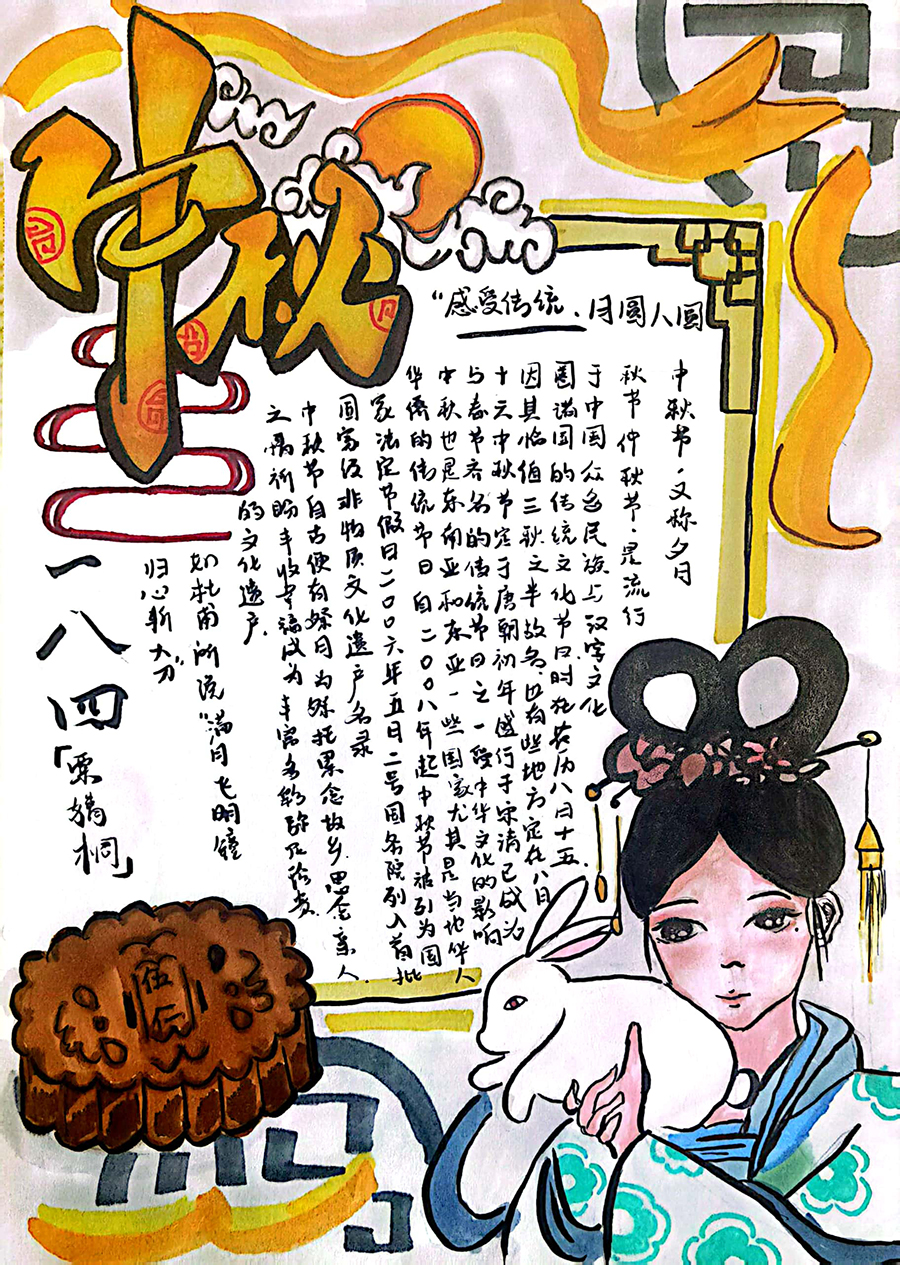 中秋
"感受传统、月圆人圆
中秋节·又称夕月
秋节仲秋节·是流行
于中国众多民族与汉字文化
圈诸国的传统文化节日时在农历八月十五
因其恰值三秋之半故名也有些地方定在八月
十六中秋节定于唐朝初年盛行于宋清已成为
与春节齐名的传统节日之一受中华文化的影响
中秋也是东南亚和东亚一些国家尤其是当地华人
华侨的传统节日自二〇〇八年起中秋节被列为国
家法定节假日二〇〇六年五日二号国务院列入首批
国家级非物质文化遗产名录
中秋节自古便有祭月为寄托思念故乡思念亲人
之情祈盼丰收幸福成为丰富多彩弥足珍贵
的文化遗产.
如杜甫所说"满月飞明镜
归心折大刀"
一八四
「栗
桐」
伍仁